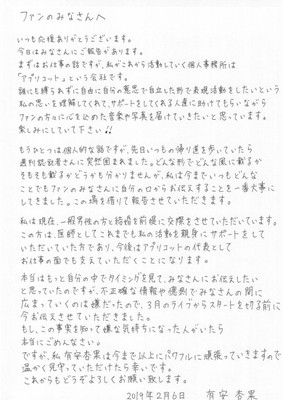 ファンのみなさんへ
いつも応援ありがとうございます。
今日はみなさんにご報告があります。
まずはお仕事の話ですが、私がこれから活動していく個人事務所は
「アプリコット」という会社です。
誰にも縛られずに自由に自分の意思で自立した形で表現活動をしたいという
私の思いを理解してくれて、サポートをしてくれる人達に助けてもらいながら
ファンの方々に心を込めた音楽や写真を届けていきたいと思っています。
楽しみにしていて下さい!!
もうひとつは個人的な話ですが、先日いつもの帰り道を歩いていたら
週刊誌記者さんに突然囲まれました。どんな形でどんな風に載るか
そもそも載るかどうかも分かりませんが、私は今までいつもどんな
ことでもファンのみなさんに自分の口からお伝えすることを一番大事に
してきました。この場を借りて報告させていただきます。
私は現在、一般男性の方と結婚を前提に交際をさせていただいています。
この方は、医師としてこれまでも私の活動を親身にサポートをして
いただいていた方であり、今後はアプリコットの代表として
お仕事の面でも支えていただくことになります。
本当はもっと自分の中でタイミングを見て、みなさんにお伝えしたい
と思っていたのですが、不正確な情報や憶測でみなさんの間に
広まっていくのは嫌だったので、3月のライブからスタートを切る前に
今お伝えさせていただきました。
もし、この事実を知って嫌な気持ちになった人がいたら
本当にごめんなさい。
ですが、私 有安杏果は今まで以上にパワフルに頑張っていきますので
温かく見守っていただけたら幸いです。
これからもどうぞよろしくお願い致します。
2019年2月6日 有安杏果